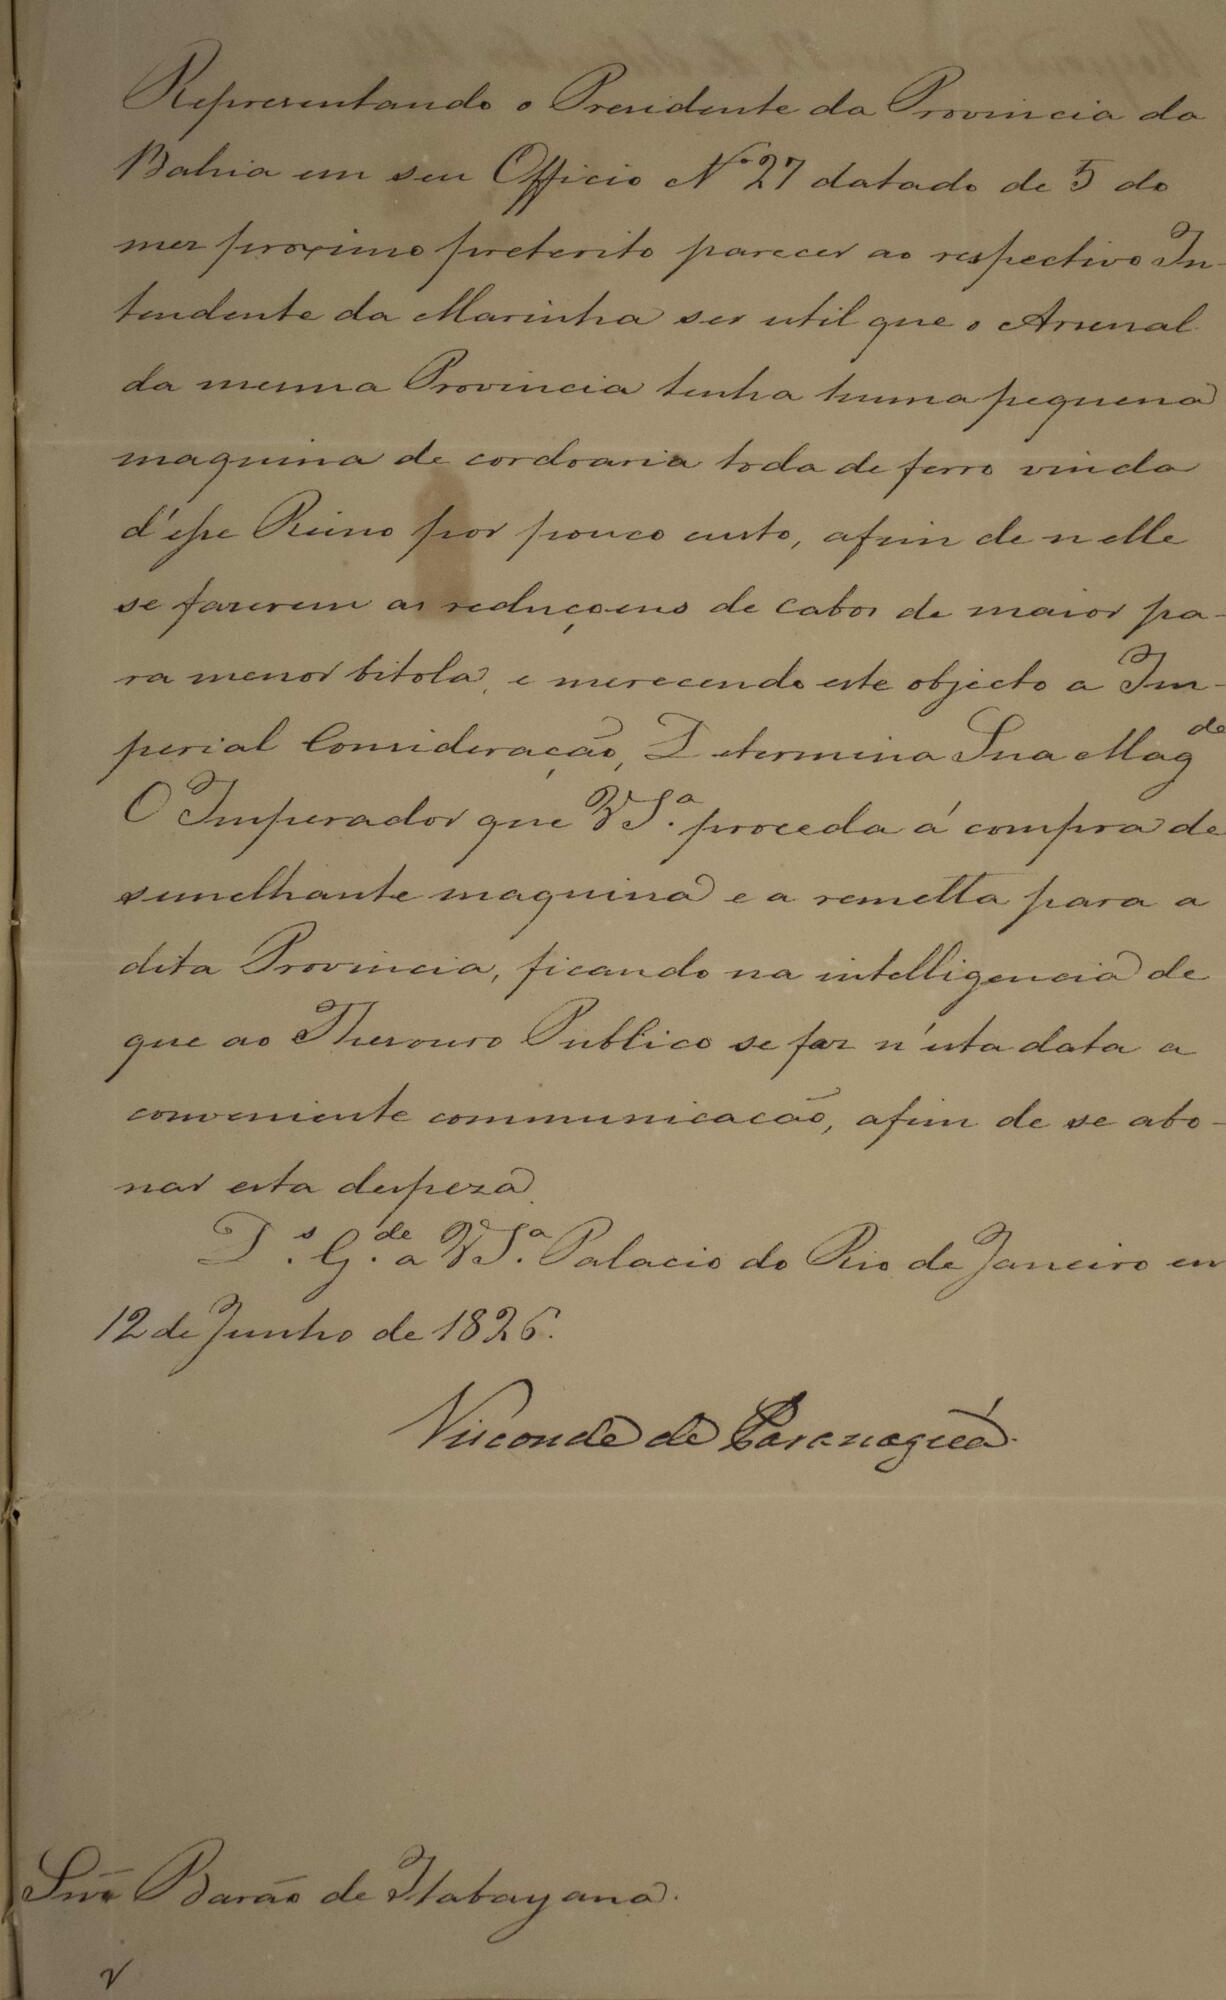 Representando o Presidente da Provincia da
Bahia em seu Officio Nº 27 datado de 5 do
mez proximo preterito parecer ao respectivo In-
tendente da Marinha ser util que o Arsenal
da mesma Provincia tenha huma pequena
maquina de cordoaria toda de ferro vinda
d'esse Reino por pouco custo, afim de nelle
se fazerem as reduçoens de cabos de maior pa-
ra menor bitola, e merecendo este objecto a Im-
perial Consideração, Determina Sua Mag.de
O Imperador que V S.ª proceda á compra de
semelhante maquina e a remetta para a
dita Provincia, ficando na intelligencia de
que ao Thesouro Publico se faz n'esta data a
conveniente communicacão, afim de se abo-
nar esta despeza.
D.s G.de a V S.ª Palacio do Rio de Janeiro em
12 de Junho de 1826.
Visconde de Paranaguá.
Snr. Barão de Itabayana.